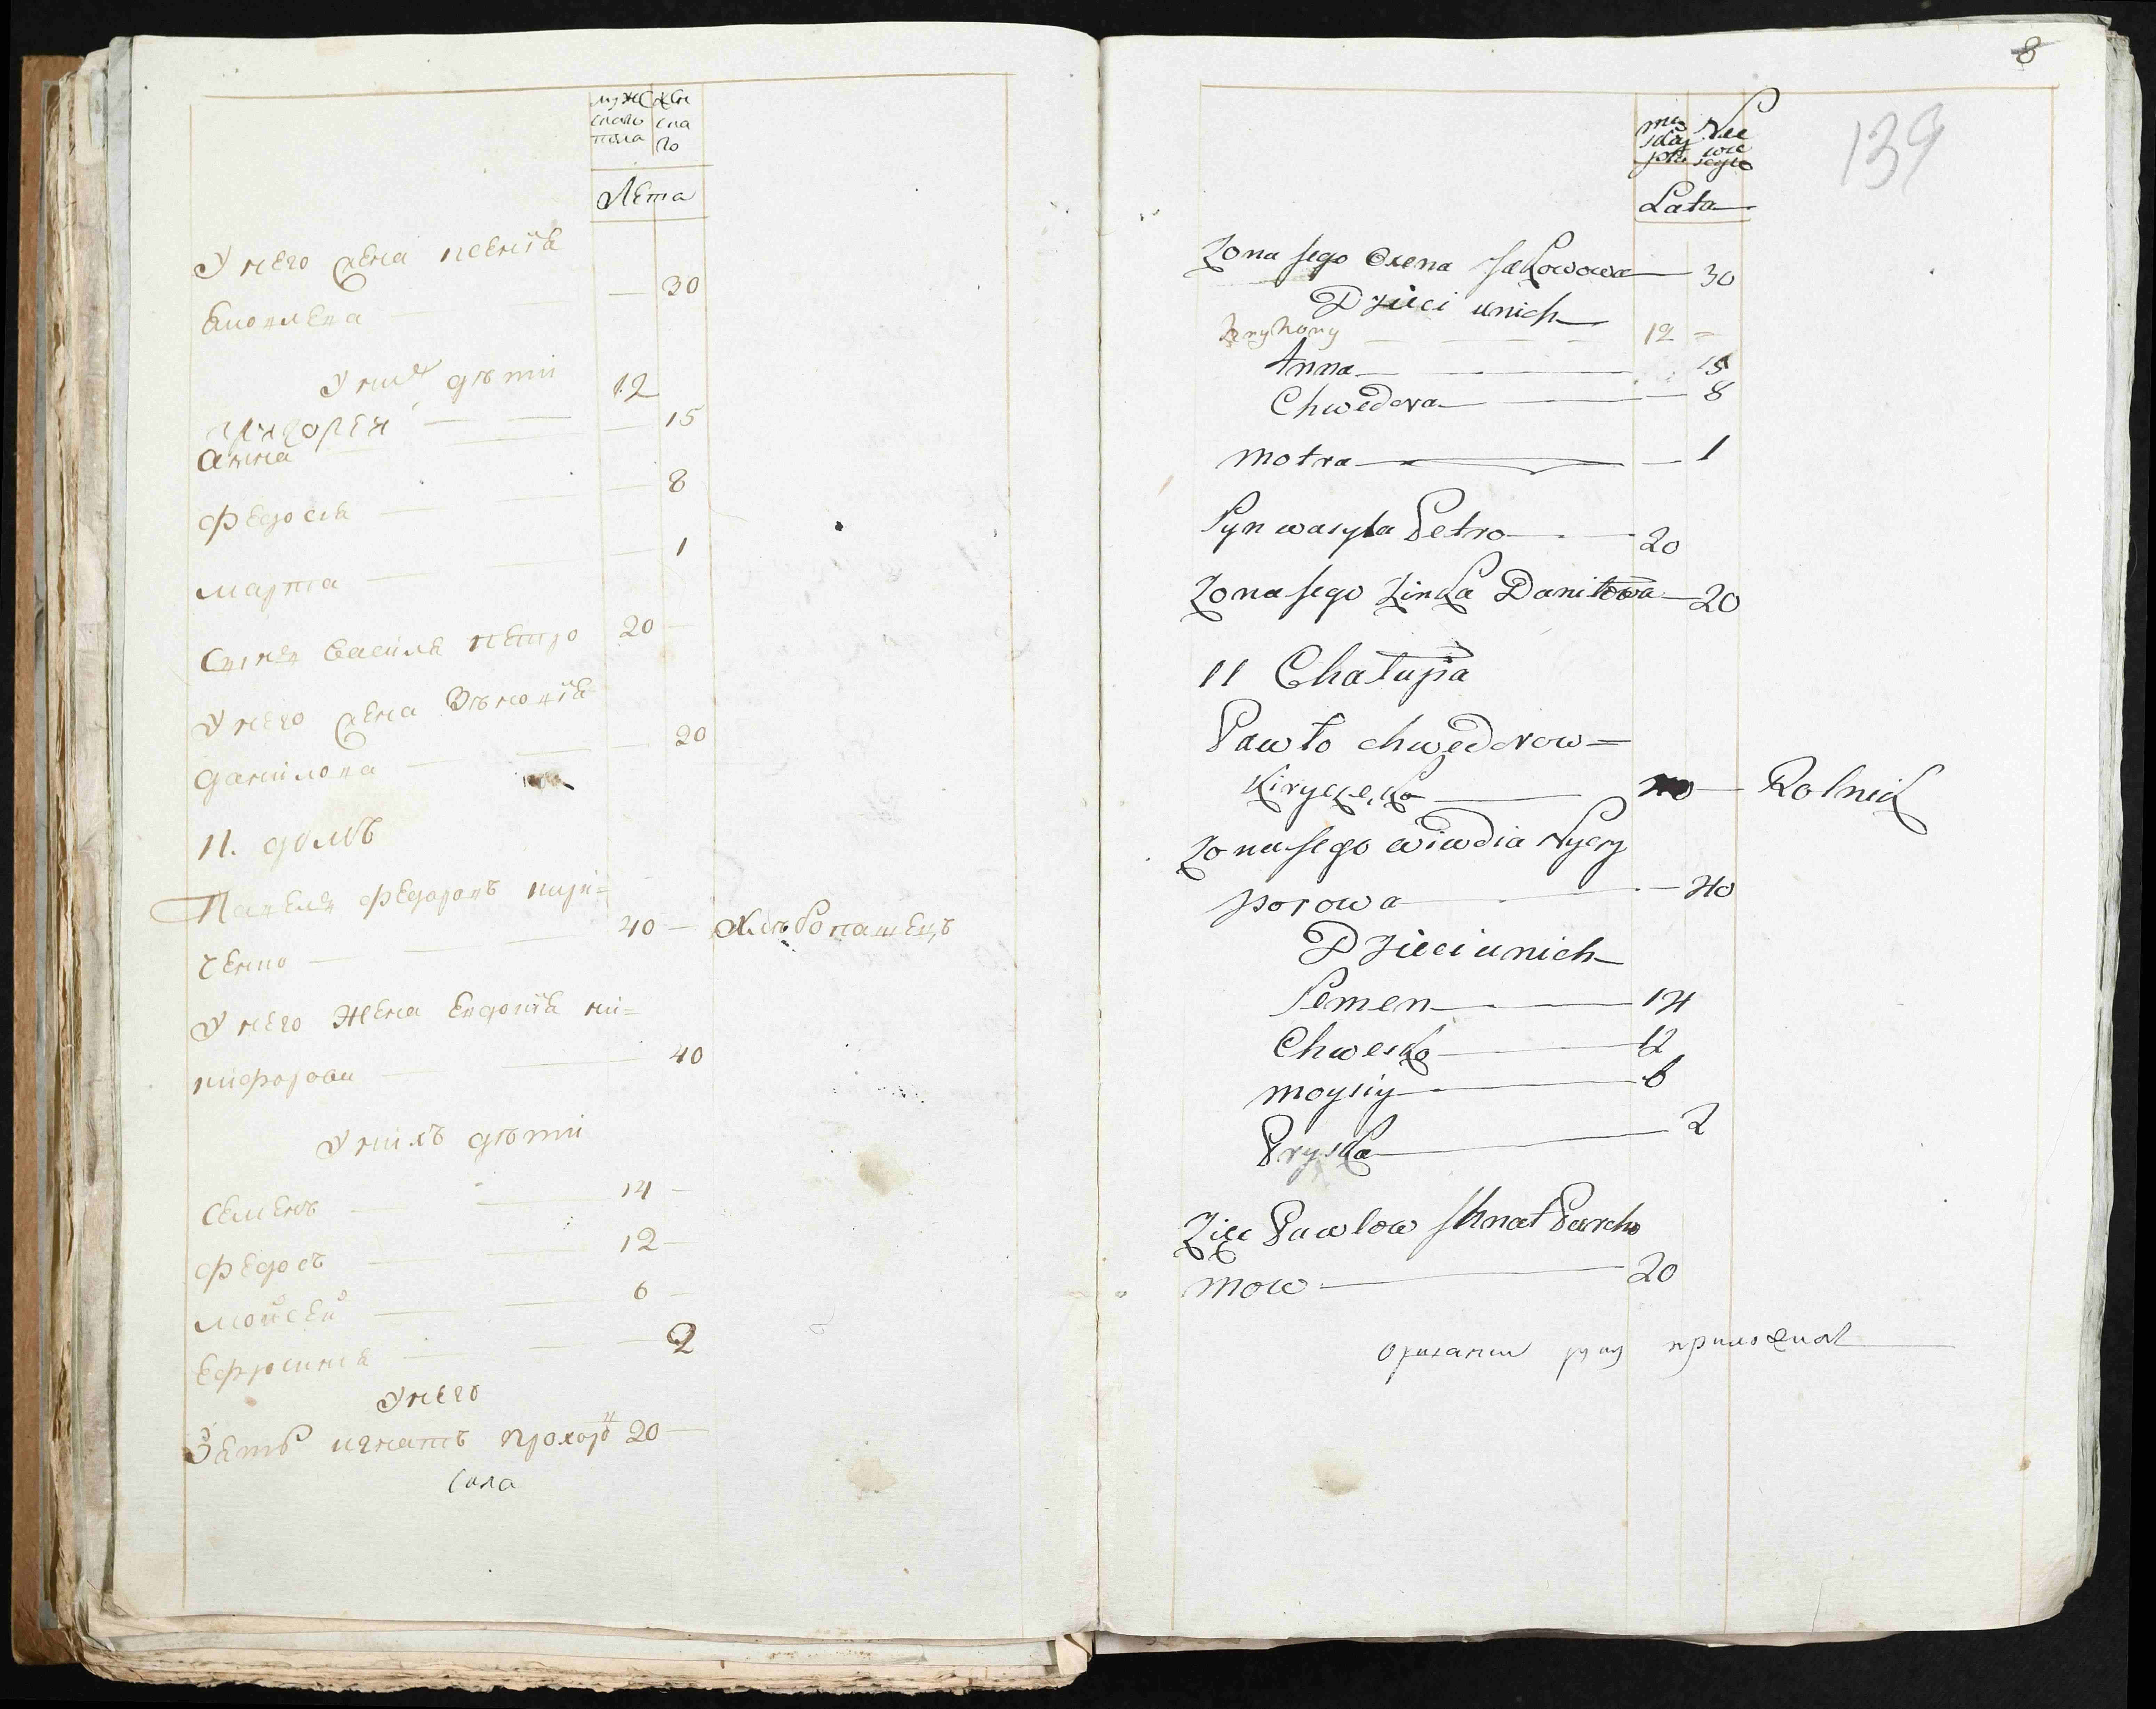 муже жен
скаго ска
пола го
Лета
У него жена
30
Яковлева
У них дѣти
Григорей 12
Анна 15
Федося 8
Марта 1
Сынъ Василя Петро 20
У него жена Зѣновія
Данилова 20
11. домъ
Павелъ Федоровъ Кири=
ченко 40 Хлѣбопашецъ
У него жена Евдокія Ни=
кифорова 40
У нихъ дѣти
Семенъ 14
Федосъ 12
Мойсей 6
Ефросиня 2
У него
Зять Игнатъ Прохоро 20
8
139
Lata
Zona jego Oxena Jakowowa 30
Dzieci unich
Hryhory 12
Anna 15
Chwedora 8
motra 1
Syn wasyla Petro 20
Zona jego Zinka Daniłowa 20
11 Chałupa
Pawło chwedorow=
Kiryczeko 40 Rolnik
Zona jego wiwdia Nyczy
porowa 40
Dzieci unich
Semen 14
Chwesko 12
moysiy 6
Pryska 2
Zięc Pawlow Ihnat Parcho
mow 20